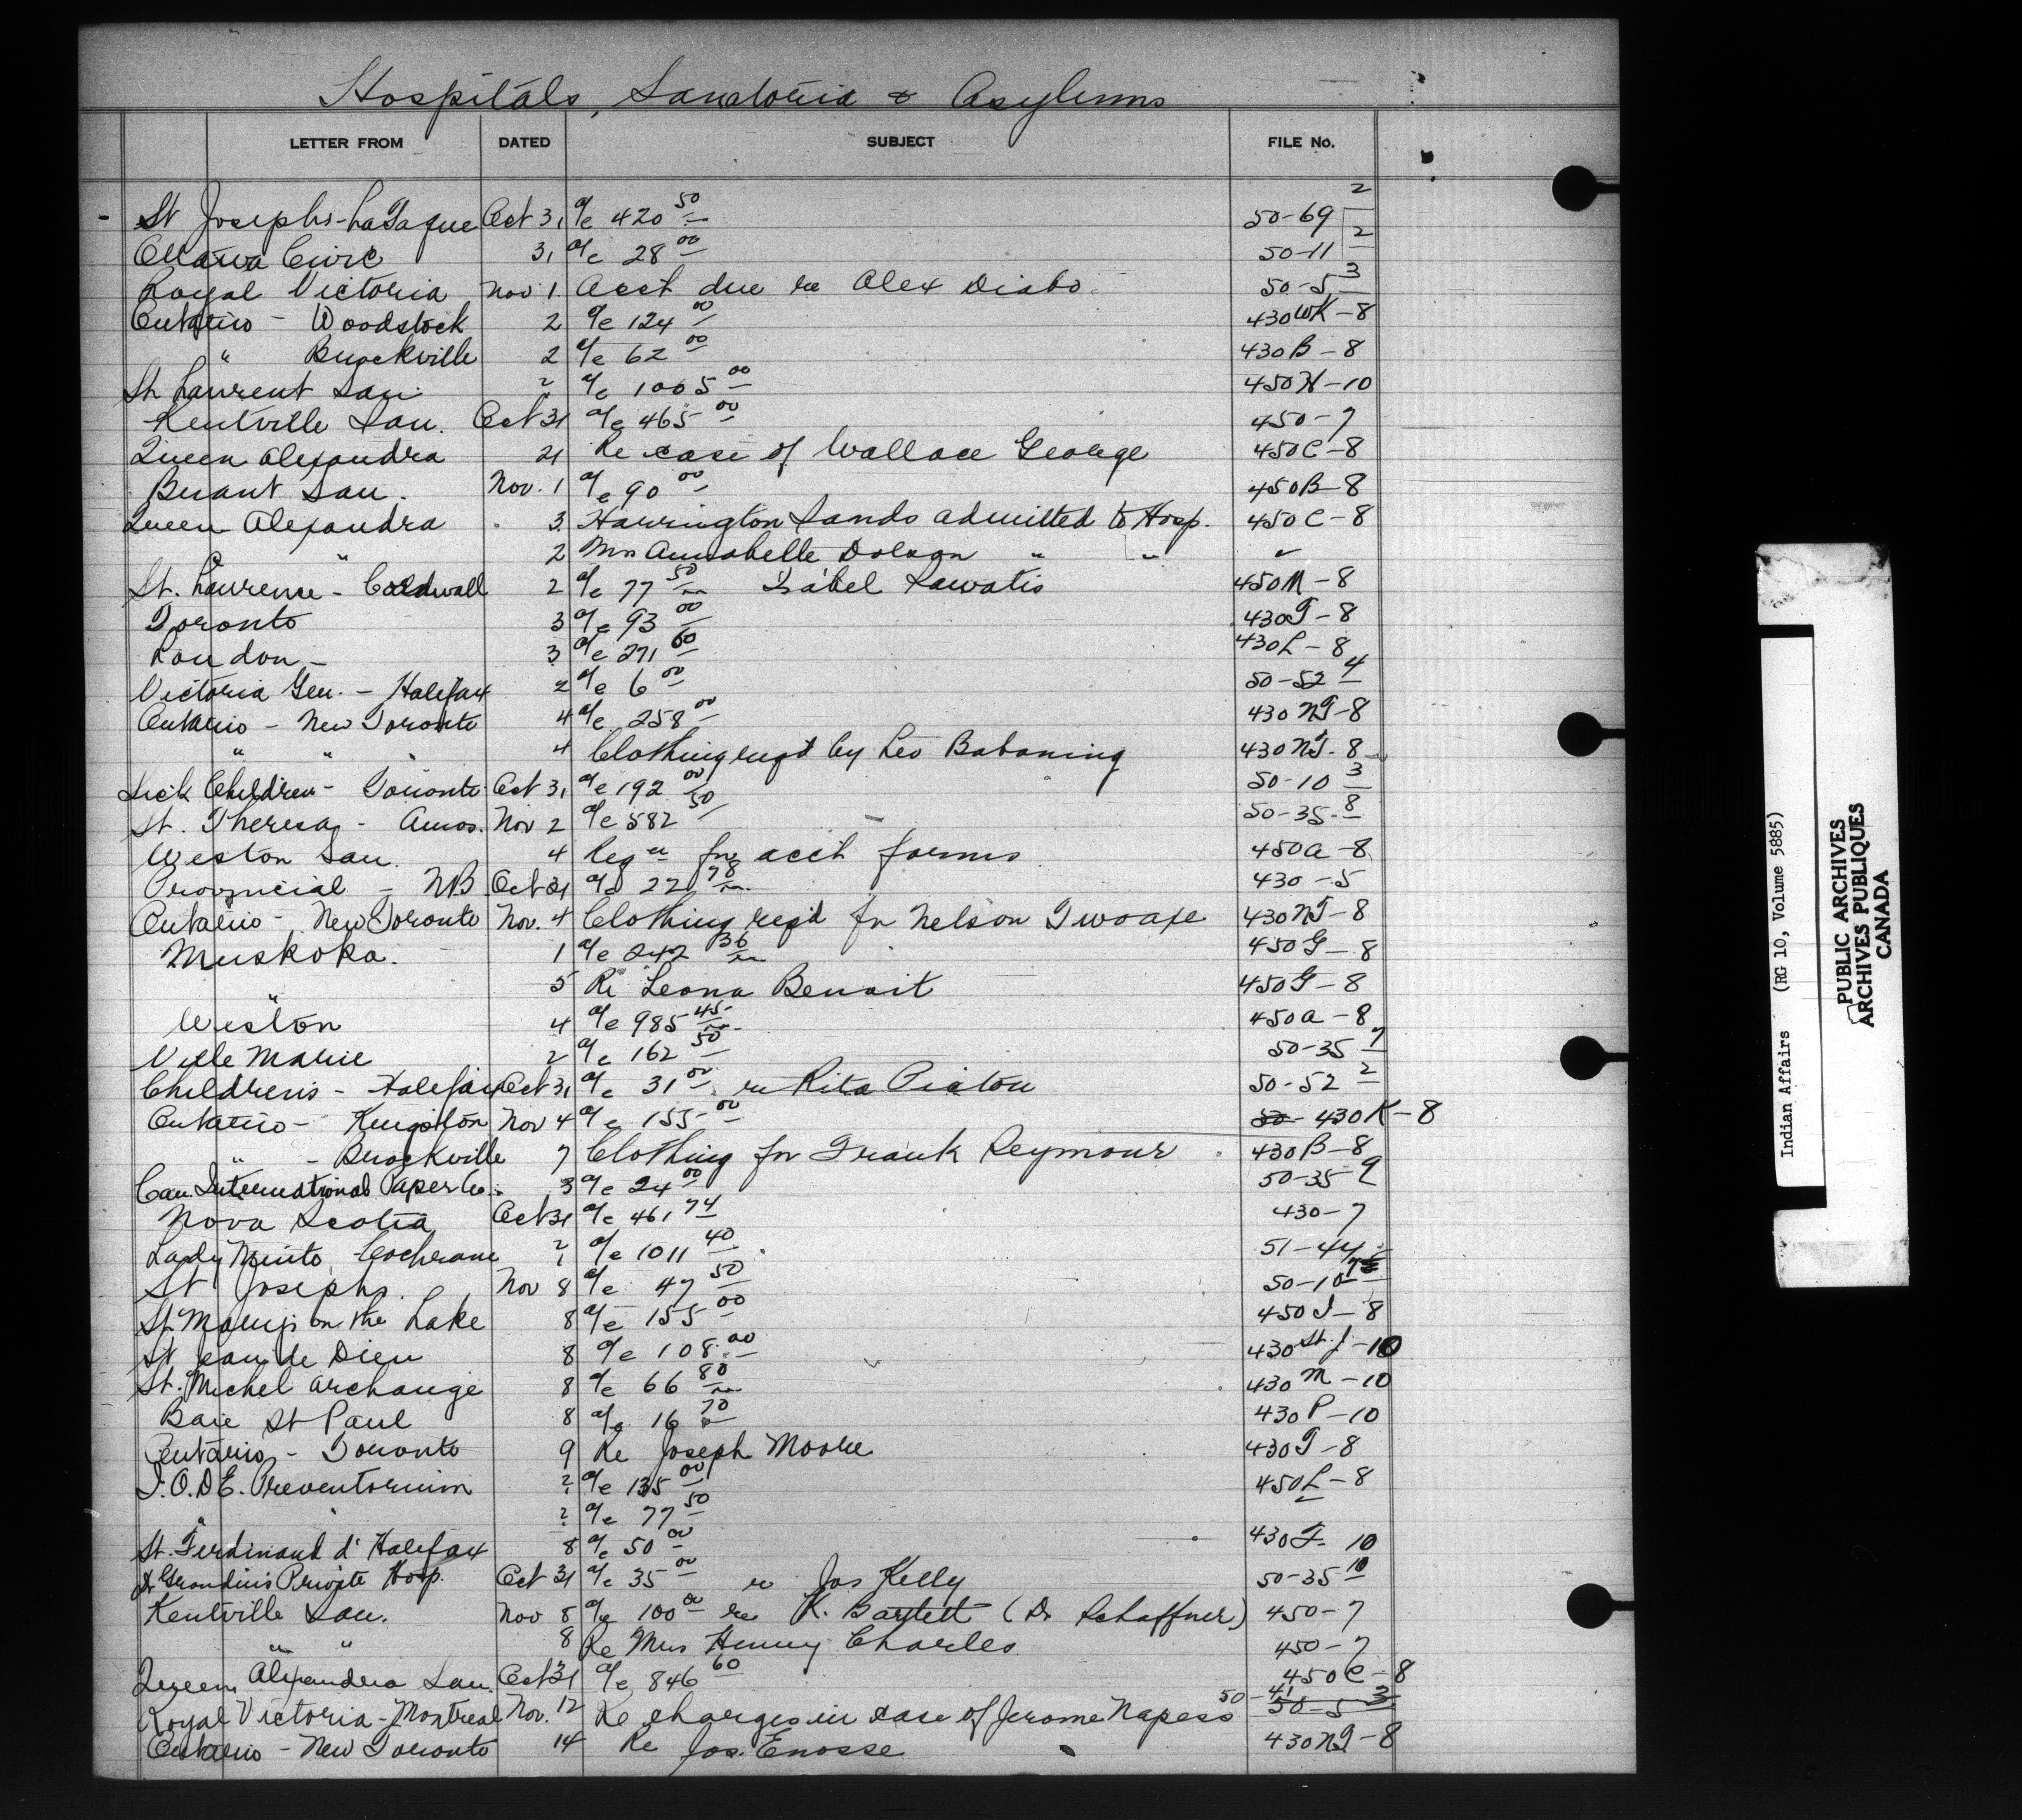 Hospitals, Sanatoria & Asylums
LETTER FROM DATED SUBJECT FILE No.
St Josephs - La Tuque Oct 31 a/c 420 50 50-69 2
Ottawa Civic 31 a/c 28 00 50-11 2
Royal Victoria Nov 1. Acct due re Alex Diabo. 50-5 3
Ontario - Woodstock 2 a/c 124 00 430WK-8
" Brockville 2 a/c 62 00 430B-8
St Laurent San. ? a/c 1005 00 450H-10
Kentville San. Oct 31 a/c 465 00 450-7
Queen Alexandra 21 Re case of Wallace George 450C-8
Brant San. Nov. 1 a/c 90 00 450B-8
Queen Alexandra 3 Harrington Sands admitted to Hosp. 450C-8
" 2 Mrs Annabelle Dolson " "
St. Lawrence - Cornwall 2 a/c 77 50 Isabel Lawatis 450M-8
Toronto 3 a/c 93 00 430T-8
London - 3 a/c 271 60 430L-8
Victoria Gen. - Halifax 2 a/c 6 00 50-52 4
Ontario - New Toronto 4 a/c 258 00 430NT-8
" " 4 Clothing reqd by Leo Babaning 430NT-8
Sick Children - Toronto Oct 31 a/c 192 00 50-10 3
St. Theresa - Amos. Nov 2 a/c 582 50 50-35-8
Weston San. 4 Reqn for acct forms 450A-8
Provincial - NB Oct 31 a/c 22 78 430-5
Ontario - New Toronto Nov. 4 Clothing reqd for Nelson Twoaxe 430NT-8
Muskoka. 1 a/c 242 36 450G-8
" 5 Re Leona Benoit 450G-8
Weston 4 a/c 985 45 450A-8
Ville Marie 2 a/c 162 50 50-35 7
Childrens - Halifax Oct 31 a/c 31 00 re Rita Picton 50-52 2
Ontario - Kingston Nov 4 a/c 155 00 50- 430K-8
" - Brockville 7 Clothing for Frank Seymour 430B-8
Can. International Paper Co. 3 a/c 24 00 50-35-9
Nova Scotia Oct 31 a/c 461 74 430-7
Lady Minto, Cochrane ? a/c 1011 40 51-44
St Josephs. Nov 8 a/c 47 50 50-10
St Marys on the Lake 8 a/c 155 00 450J-8
St Jean de Dieu 8 a/c 108 00 430St.J-10
St. Michel Archange 8 a/c 66 80 430M-10
Baie St Paul 8 a/c 16 70 430P-10
Ontario - Toronto 9 Re Joseph Moore 430T-8
I.O.D.E. Preventorium ? a/c 135 00 450L-8
" ? a/c 77 50
St. Ferdinand d'Halifax 8 a/c 50 00 430F-10
Dr Grondin's Private Hosp. Oct 31 a/c 35 00 re Jas Kelly 50-35 10
Kentville San. Nov 8 a/c 100 00 re K. Bartlett (Dr Schaffner) 450-7
" " 8 Re Mrs Henry Charles 450-7
Queen Alexandra San. Oct 31 a/c 846 60 450C-8
Royal Victoria - Montreal Nov. 12 Re charges in case of Jerome Napess 50-41 50-5 3
Ontario - New Toronto 14 Re Jos. Enosse 430NT-8
Indian Affairs (RG 10, Volume 5885)
PUBLIC ARCHIVES
ARCHIVES PUBLIQUES
CANADA